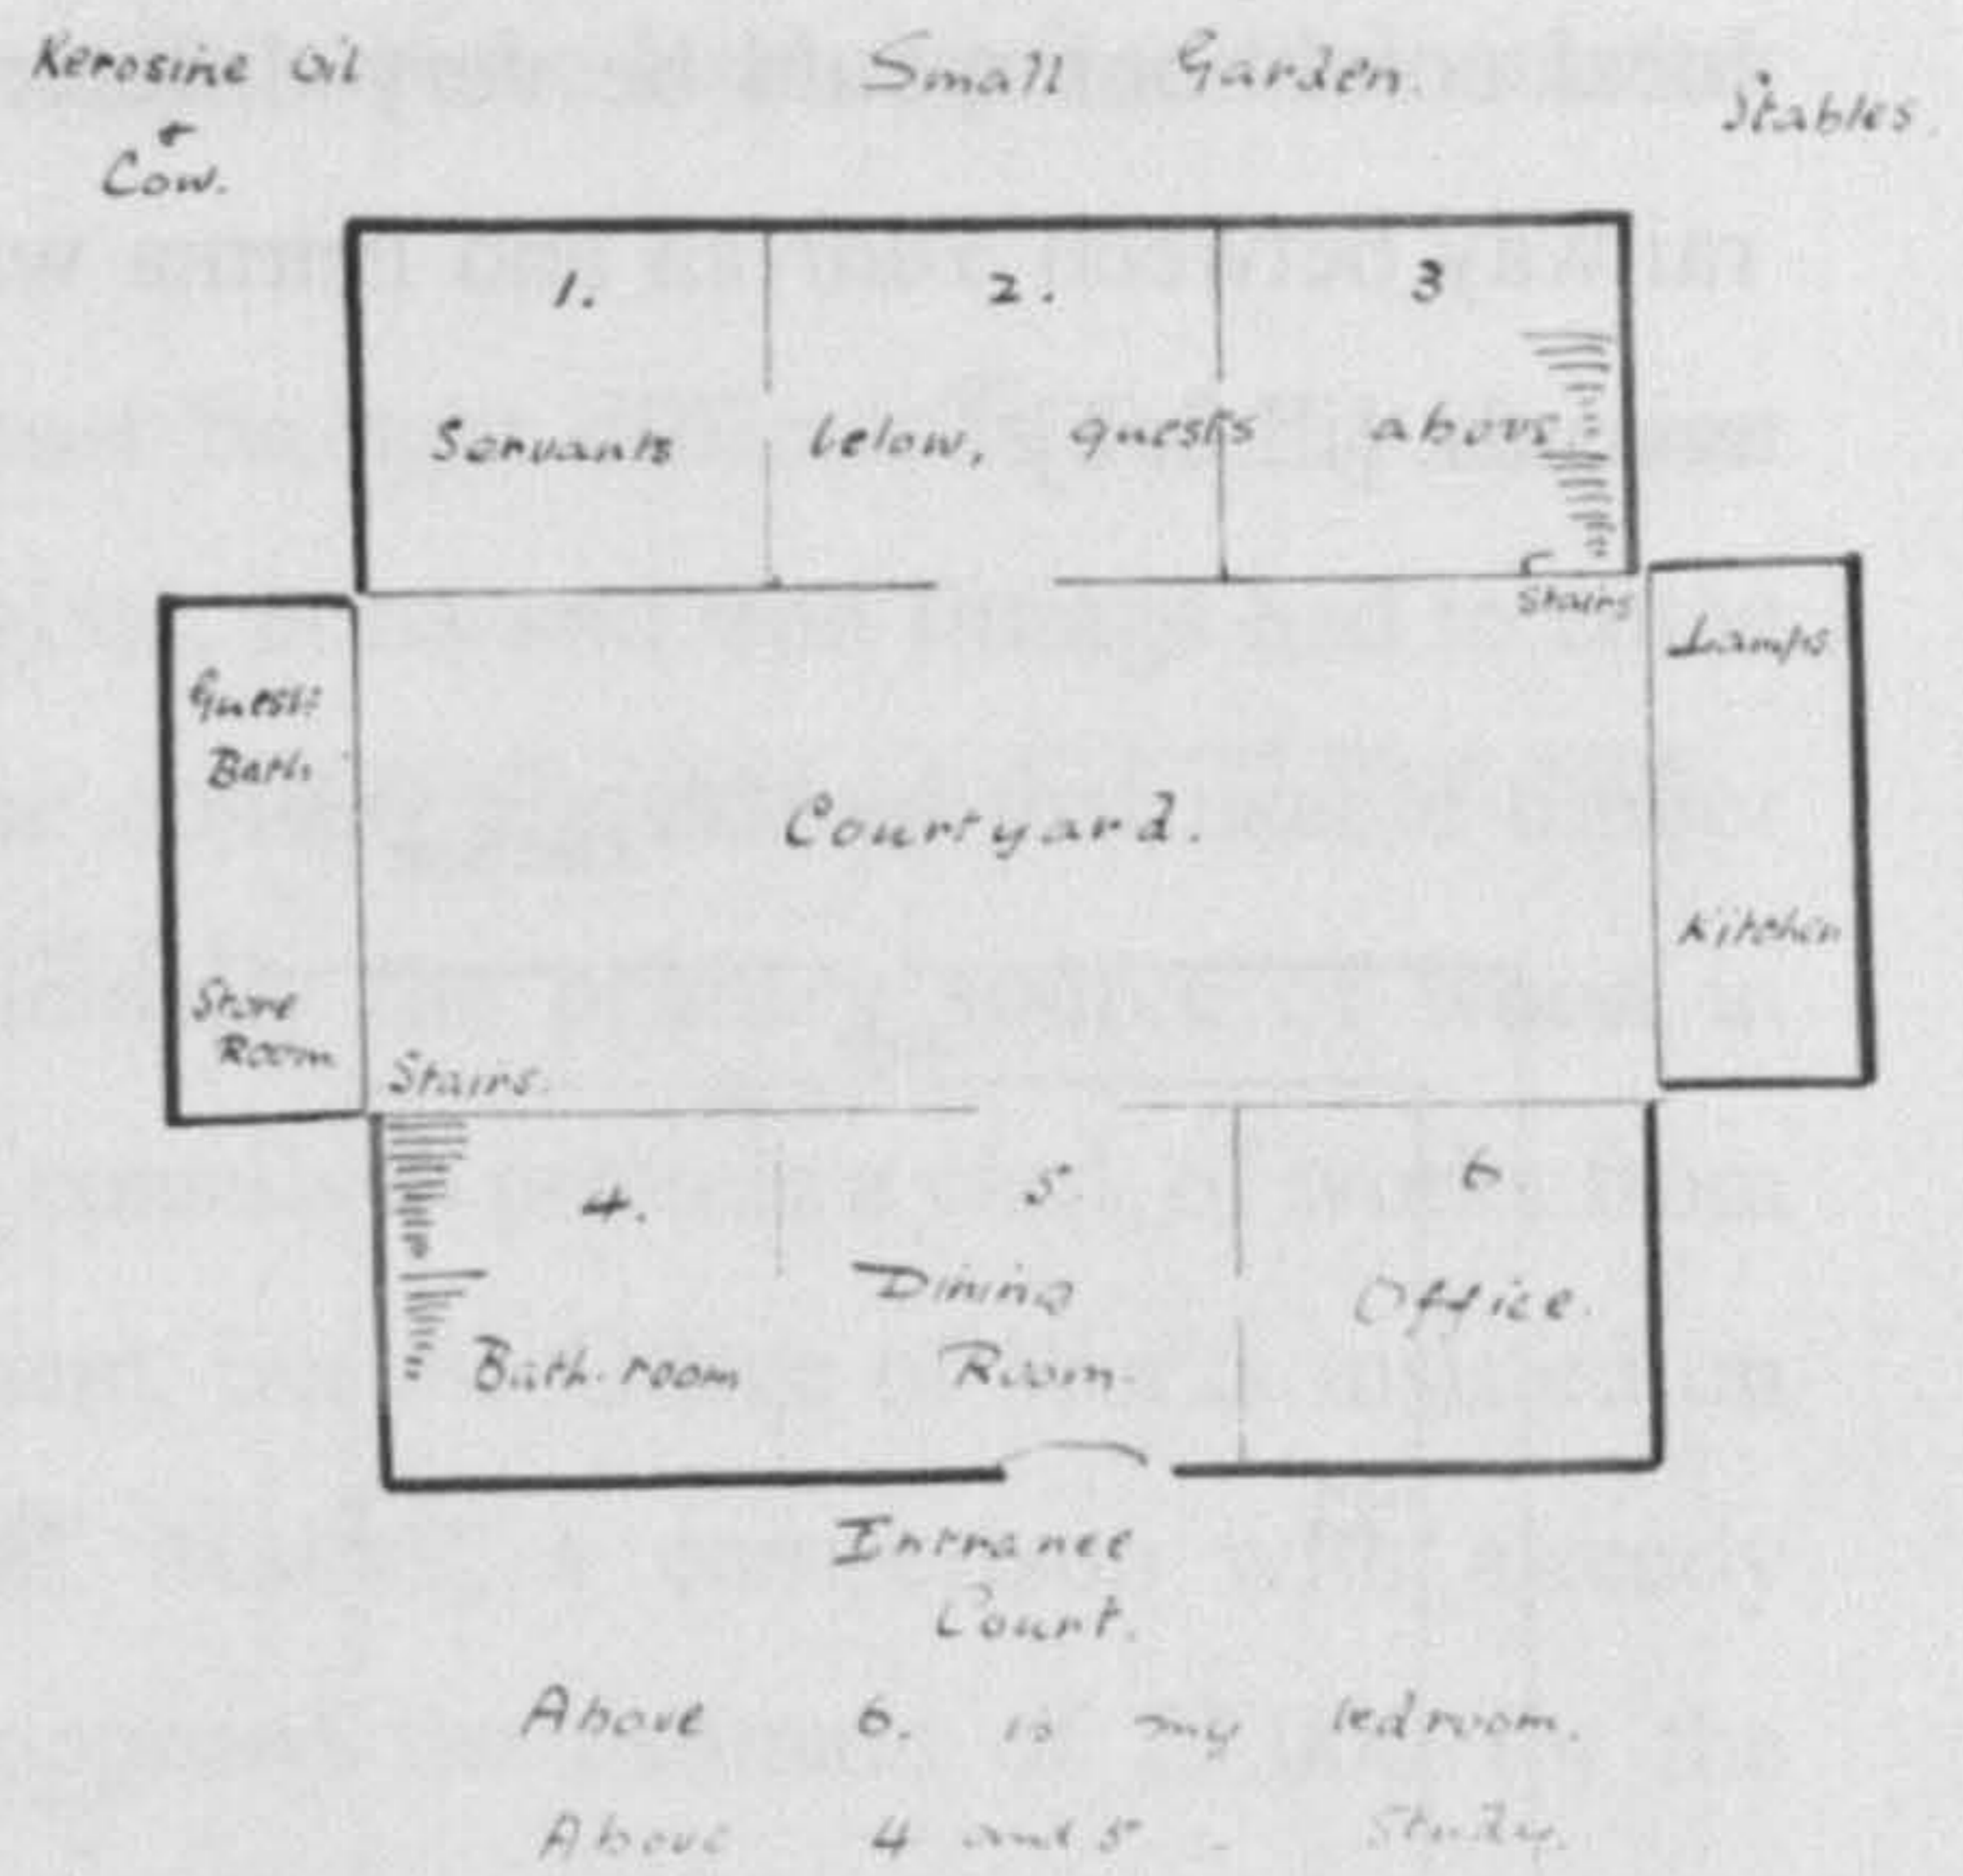 Kerosine Oil
&
Cow.
Small Garden.
Stables.
1. 2. 3
Servants below, guests above
Stairs
Guests
Bath
Store
Room
Lamps
Kitchen
Courtyard.
Stairs.
4. 5 6.
Bath-room
Dining
Room.
Office.
Entrance
Court.
Above 6. is my bedroom.
Above 4 and 5 - Study.